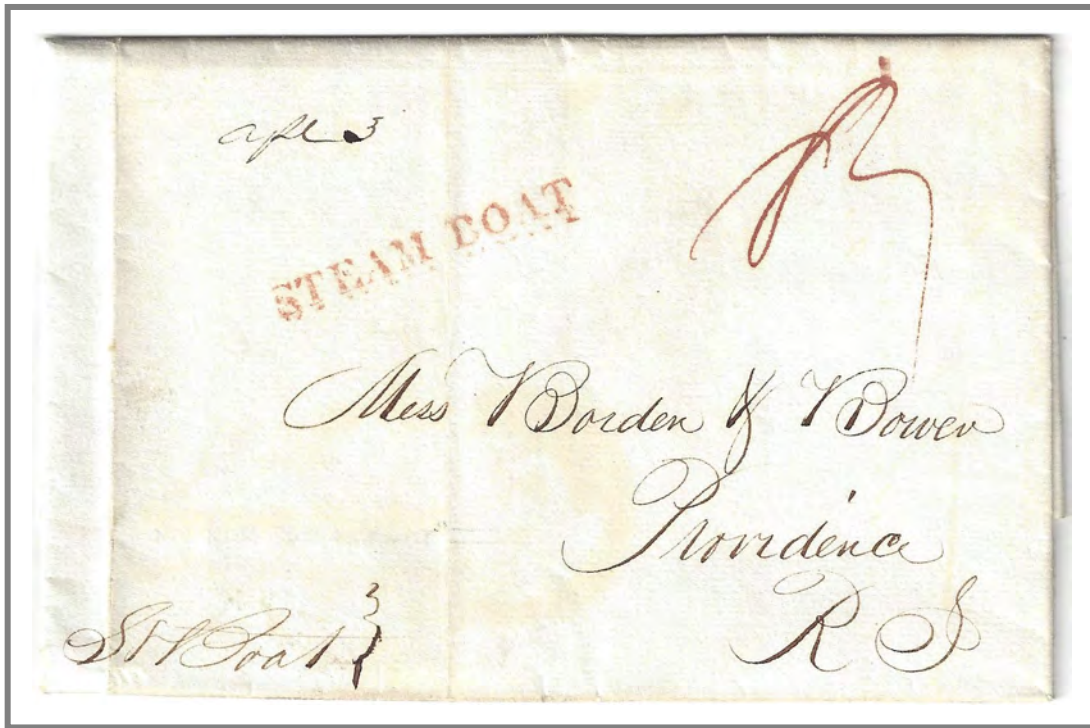 Apl 3
STEAM BOAT
Mess Borden & Bower
Providence
R I
St Boat